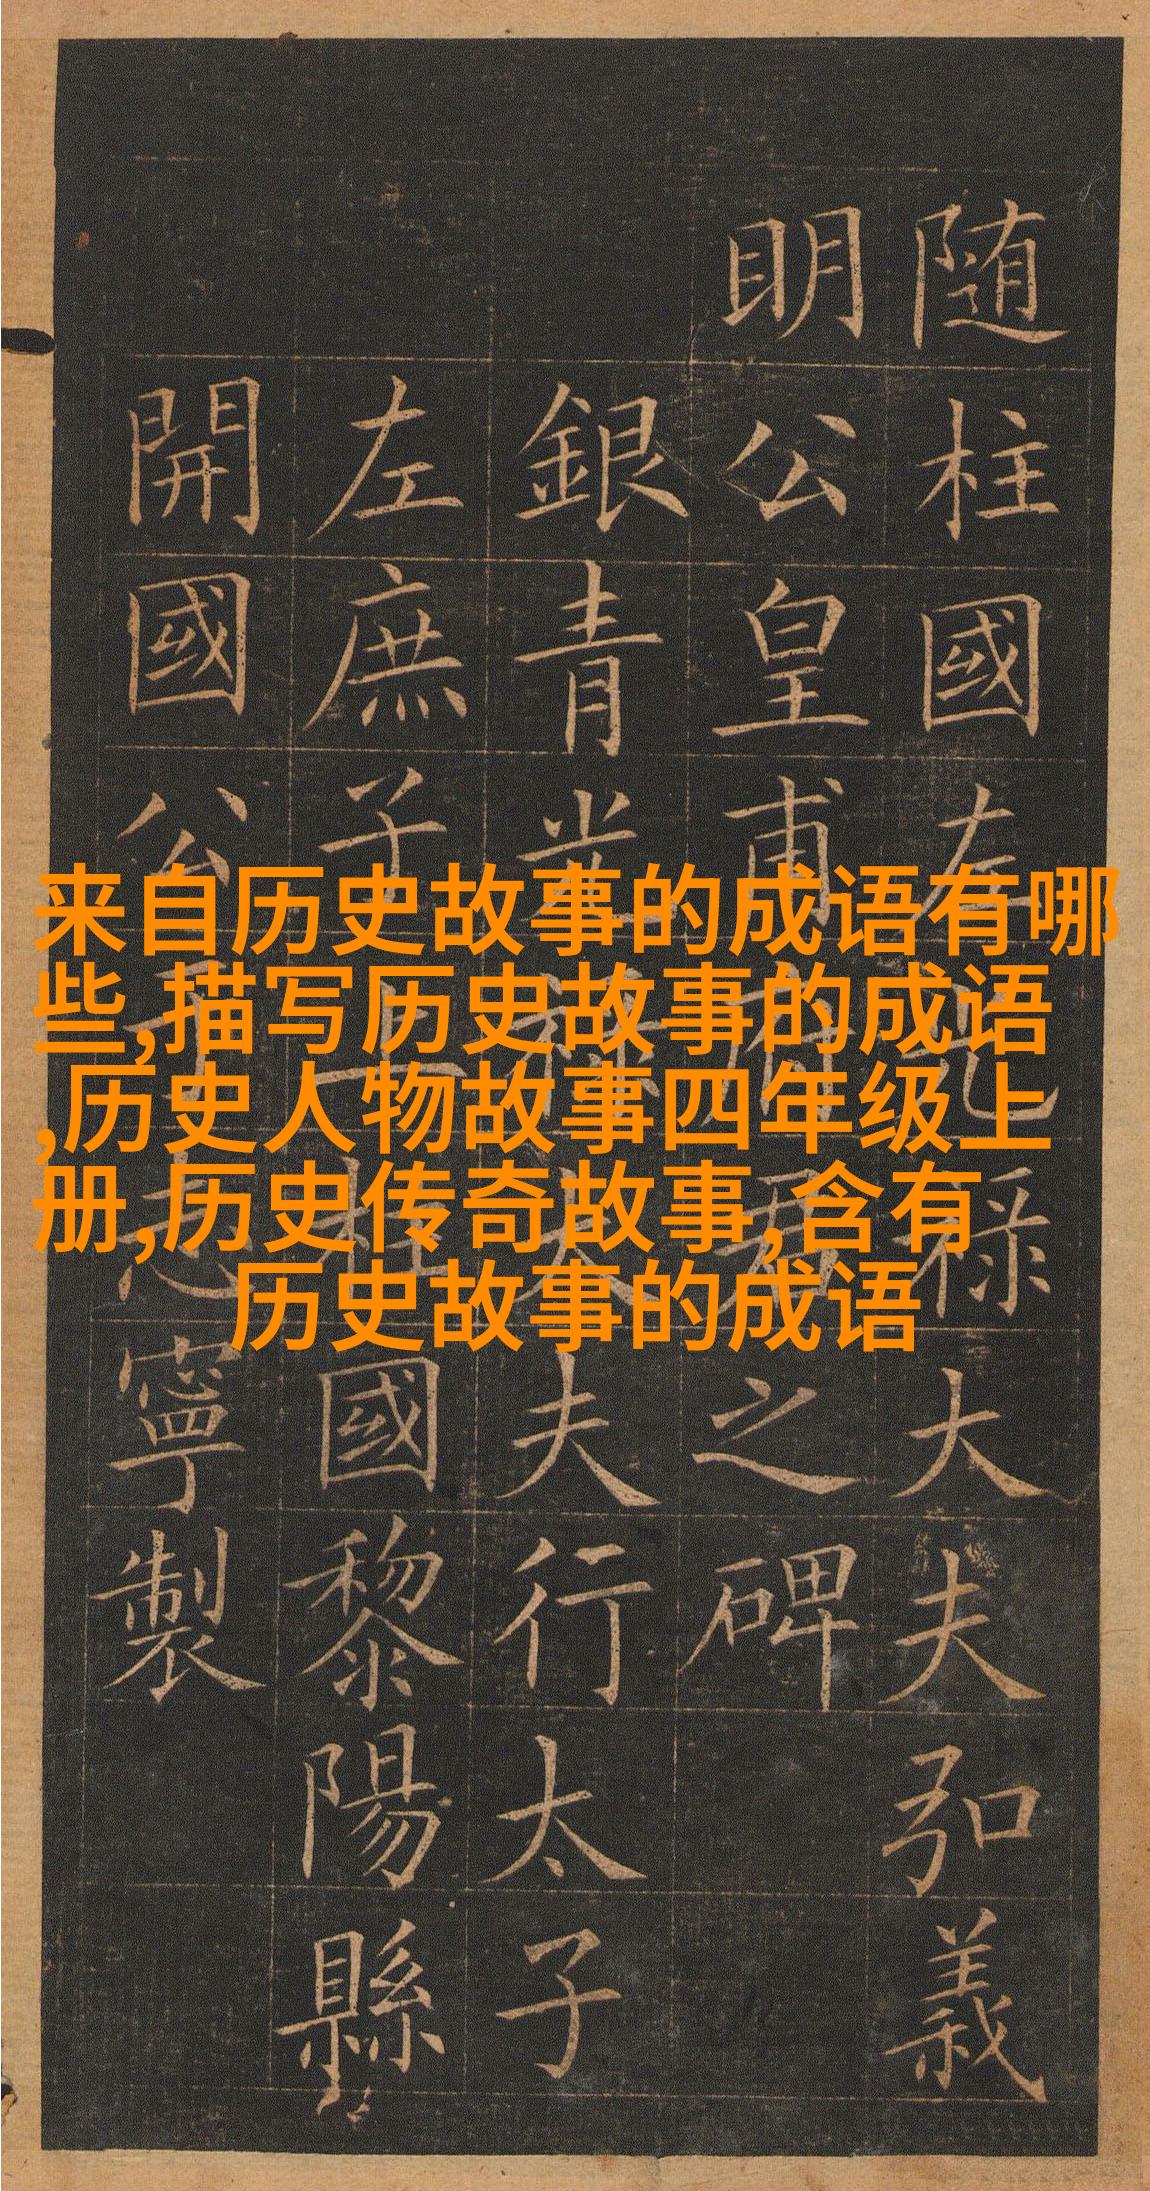 随柱國左光禄大夫弘義
明公皇甫府君之碑
銀青光祿大夫行太子
左庶子上柱國黎陽縣
開國公于志寧製
来自历史故事的成语有哪
些,描写历史故事的成语
,历史人物故事四年级上
册,历史传奇故事,含有
历史故事的成语